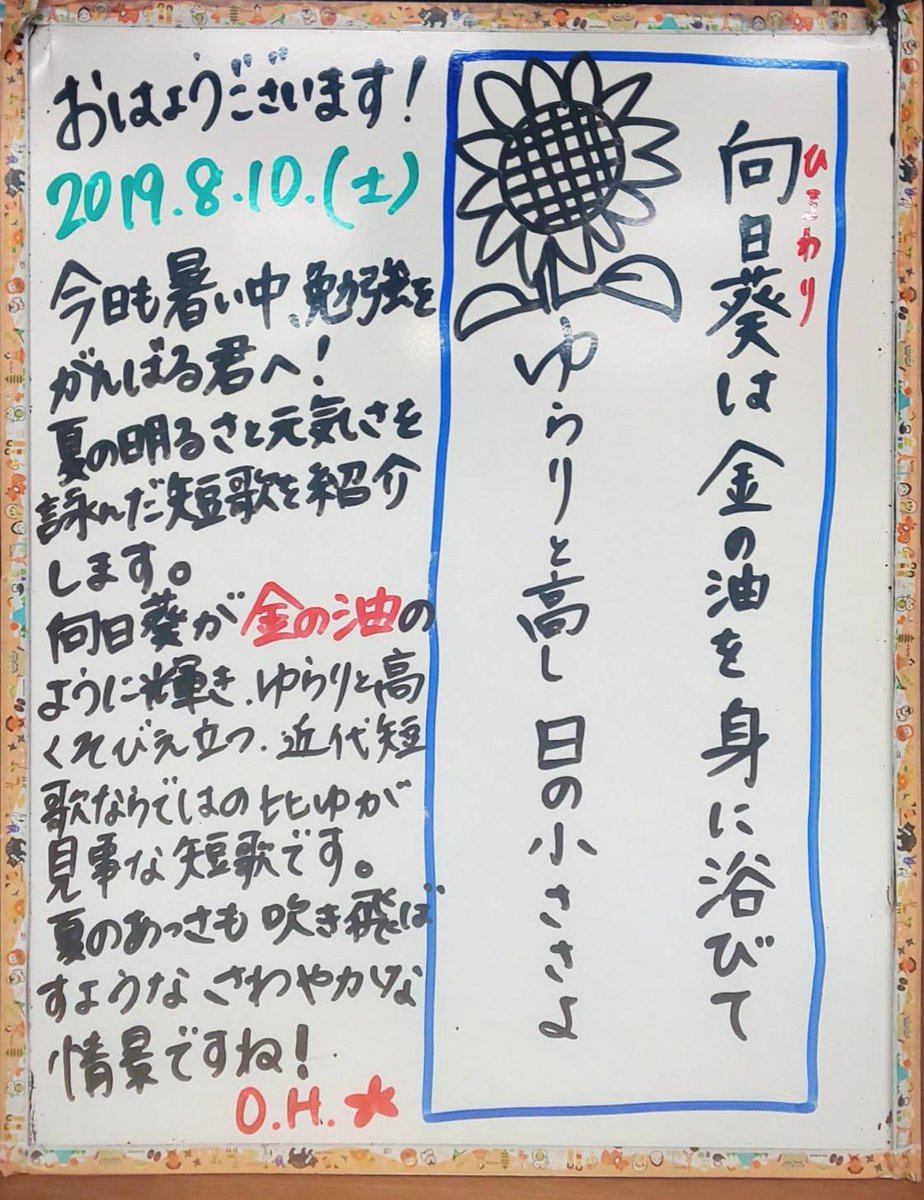 おはようございます!
2019.8.10.(土)
今日も暑い中、勉強を
がんばる君へ!
夏の明るさと元気さを
詠んだ短歌を紹介
します。
向日葵が金の油の
ように輝き、ゆらりと高
くそびえ立つ、近代短
歌ならではの比ゆが
見事な短歌です。
夏のあっさも吹き飛ば
すような さわやかな
情景ですね!
O.H.
ひまわり
向日葵は 金の油を 身に浴びて
ゆらりと高し 日の小ささよ